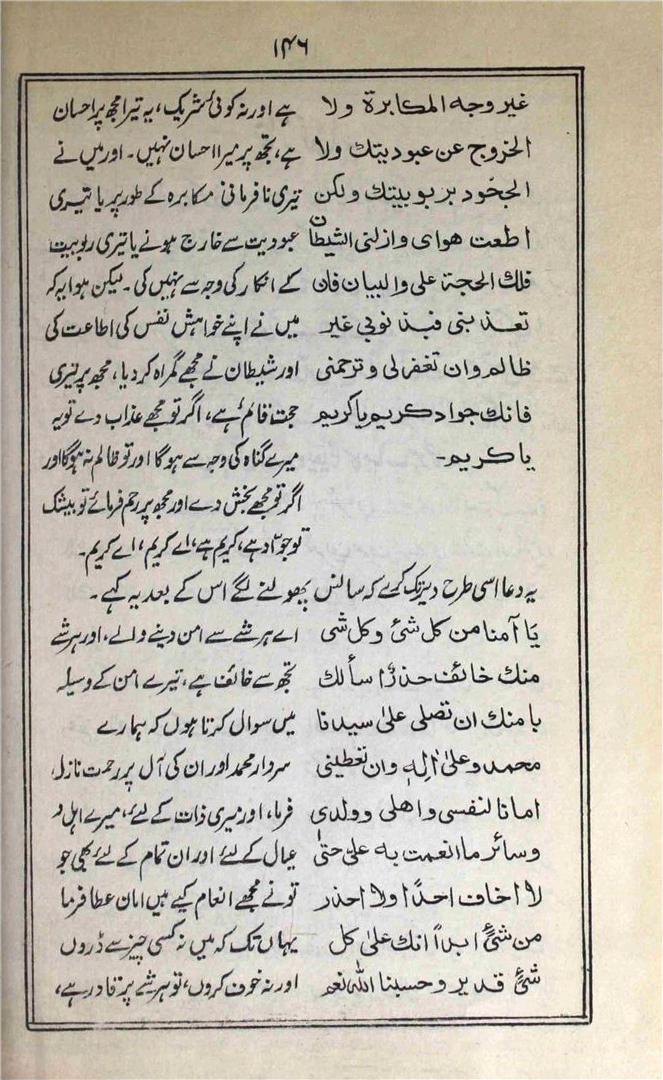 ۱۴۶
غیر وجه المکابرة ولا
الخروج عن عبودیتك ولا
الجحود بربوبیتك ولکن
اطعت هوای وازلنی الشیطان
فلك الحجة علی والبیان فان
تعذبنی فبذنوبی غیر
ظالم وان تغفرلی وترحمنی
فانك جواد کریم یا کریم
یا کریم۔
ہے اور نہ کوئی شریک، یہ تیرا مجھ پر احسان
ہے، تجھ پر میرا احسان نہیں۔ اور میں نے
تیری نافرمانی مکابرہ کے طور پر یا تیری
عبودیت سے خارج ہونے یا تیری ربوبیت
کے انکار کی وجہ سے نہیں کی۔ لیکن ہوا یہ کہ
میں نے اپنے خواہش نفس کی اطاعت کی
اور شیطان نے مجھے گمراہ کر دیا، مجھ پر تیری
حجت قائم ہے، اگر تو مجھے عذاب دے تو یہ
میرے گناہ کی وجہ سے ہوگا اور تو ظالم نہ ہوگا اور
اگر تو مجھے بخش دے اور مجھ پر رحم فرمائے تو بیشک
تو جوّاد ہے، کریم ہے، اے کریم، اے کریم۔
یہ دعا اسی طرح دیر تک کہے کہ سانس پھولنے لگے اس کے بعد یہ کہے۔
یَا آمنا من کل شیٔ وکل شی
منك خائف حذرًا سألك
بامنك ان تصلی علیٰ سیدنا
محمد وعلیٰ اٰلہٖ وان تعطینی
امانا لنفسی واهلی وولدی
وسائر ما انعمت به علیّ حتیٰ
لا اخاف احدًا ولا احذر
من شیٔ ابدًا انك علیٰ کل
شیٔ قدیر وحسبنا اللہ نعم
اے ہر شے سے امن دینے والے، اور ہر شے
تجھ سے خائف ہے، تیرے امن کے وسیلہ
میں سوال کرتا ہوں کہ ہمارے
سردار محمد اور ان کی آل پر رحمت نازل
فرما، اور میری ذات کے لئے، میرے اہل و
عیال کے لئے اور ان تمام کے لئے بھی جو
تونے مجھے انعام کیے ہیں امان عطا فرما
یہاں تک کہ میں نہ کسی چیز سے ڈروں
اور نہ خوف کروں، تو ہر شے پر قادر ہے،